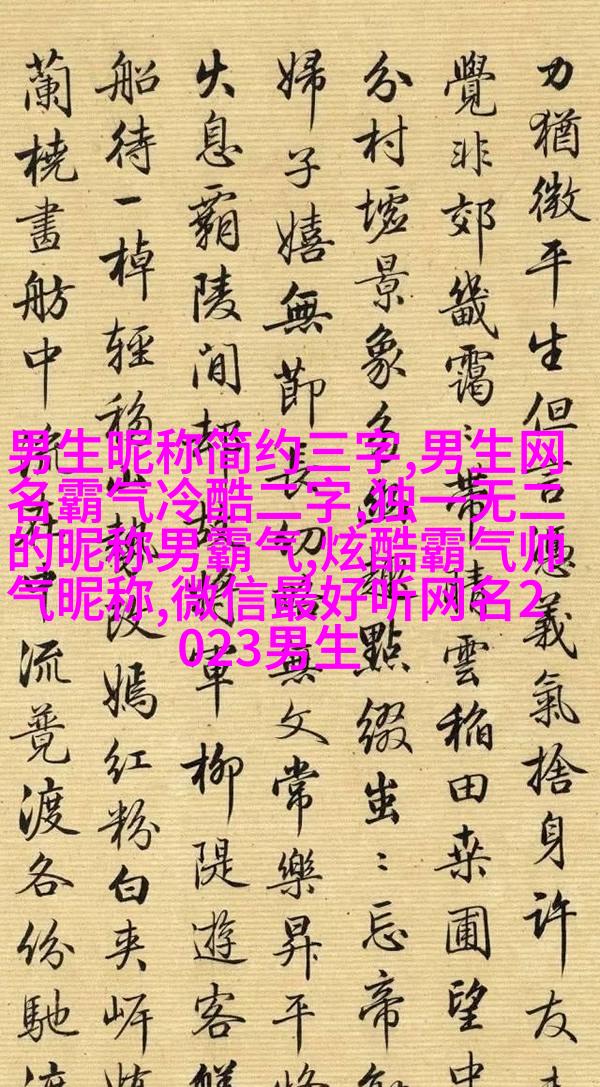 男生昵称简约三字,男生网
名霸气冷酷二字,独一无二
的昵称男霸气,炫酷霸气帅
气昵称,微信最好听网名2
023男生
力猶微平生但言憑義氣捨身許友
覺非郊畿靄々帶晴雲稻田桒圃望中
分村墟景象多趣點綴出々忘帝
婦子嬉無節長幼無文常樂昇平
火息霸陵間却將軍柳隄遊客
船待一棹輕移嫣红粉白夾岈
蘭橈畫舫中流覽渡各份馳